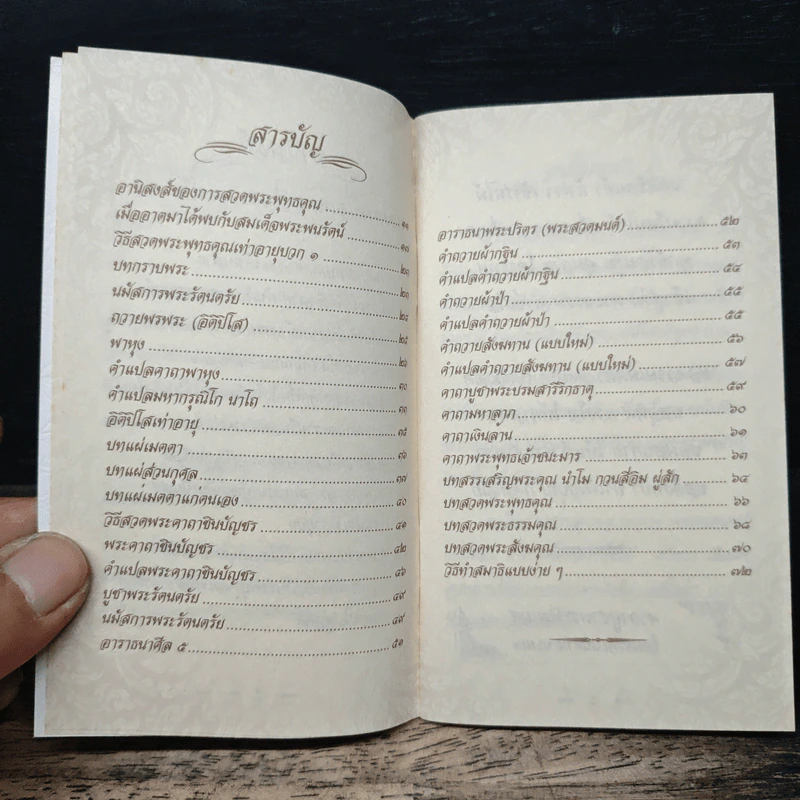 สารบัญ
อานิสงส์ของการสวดพระพุทธคุณ ๑๑
เมื่ออาตมาได้พบกับสมเด็จพระพนรัตน์ ๑๗
วิธีสวดพระพุทธคุณเท่าอายุบวก ๑ ๒๓
บทกราบพระ ๒๓
นมัสการพระรัตนตรัย ๒๔
ถวายพรพระ (อิติปิโส) ๒๕
พาหุง ๒๖
คำแปลคาถาพาหุง ๓๐
คำแปลมหากรุณิโก นาโถ ๓๓
อิติปิโสเท่าอายุ ๓๕
บทแผ่เมตตา ๓๖
บทแผ่ส่วนกุศล ๓๗
บทแผ่เมตตาแก่ตนเอง ๔๐
วิธีสวดพระคาถาชินบัญชร ๔๑
พระคาถาชินบัญชร ๔๒
คำแปลพระคาถาชินบัญชร ๔๖
บูชาพระรัตนตรัย ๔๙
นมัสการพระรัตนตรัย ๔๙
อาราธนาศีล ๕ ๕๑
อาราธนาพระปริตร (พระสวดมนต์) ๕๒
คำถวายผ้ากฐิน ๕๓
คำแปลคำถวายผ้ากฐิน ๕๔
คำถวายผ้าป่า ๕๕
คำแปลคำถวายผ้าป่า ๕๕
คำถวายสังฆทาน (แบบใหม่) ๕๖
คำแปลคำถวายสังฆทาน (แบบใหม่) ๕๗
คาถาบูชาพระบรมสารีริกธาตุ ๕๙
คาถามหาลาภ ๖๐
คาถาเงินล้าน ๖๑
คาถาพระพุทธเจ้าชนะมาร ๖๓
บทสรรเสริญพระคุณ นำโม กวนสี่อิม ผู่สัก ๖๔
บทสวดพระพุทธคุณ ๖๖
บทสวดพระธรรมคุณ ๖๘
บทสวดพระสังฆคุณ ๗๐
วิธีทำสมาธิแบบง่าย ๆ ๗๒